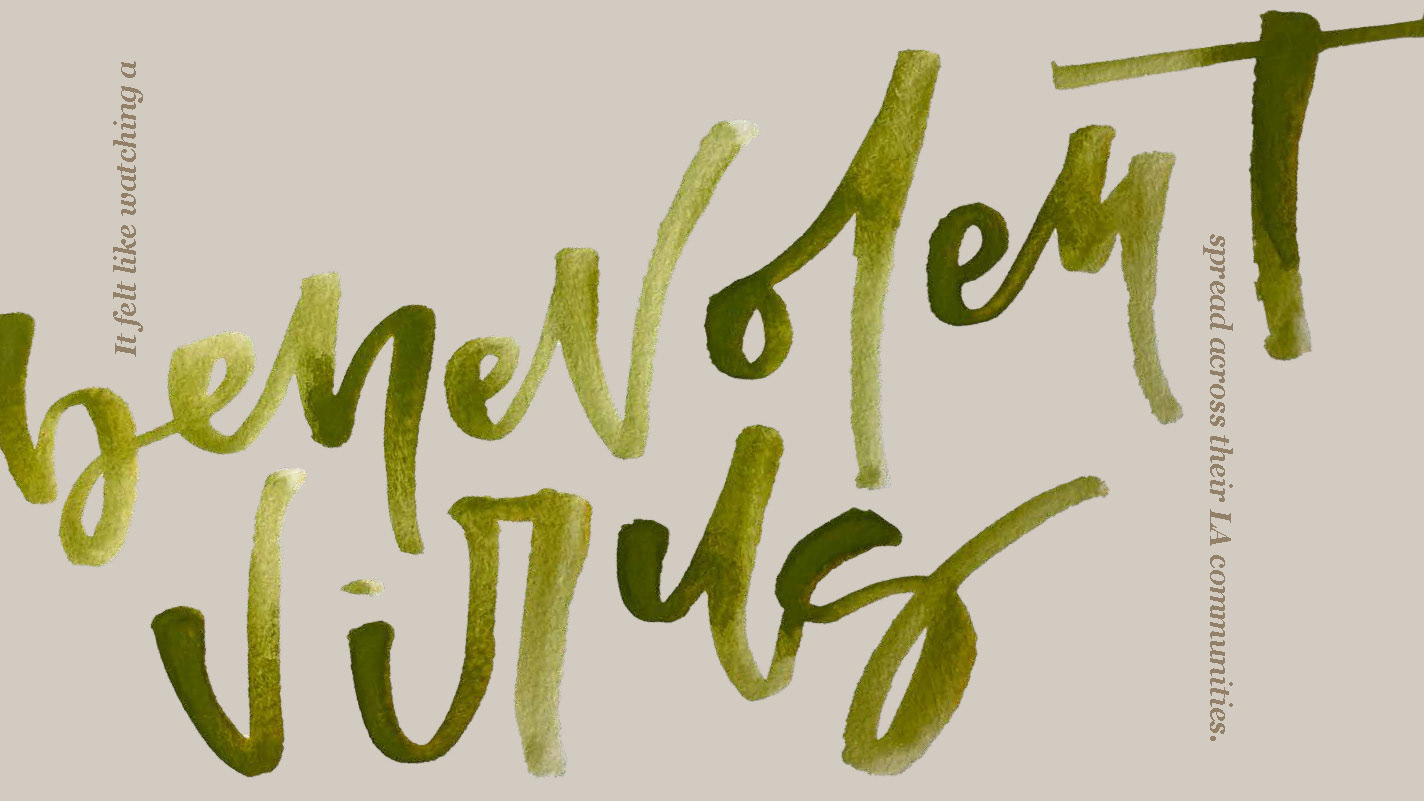 It felt like watching a
benevolent
virus
spread across their LA communities.